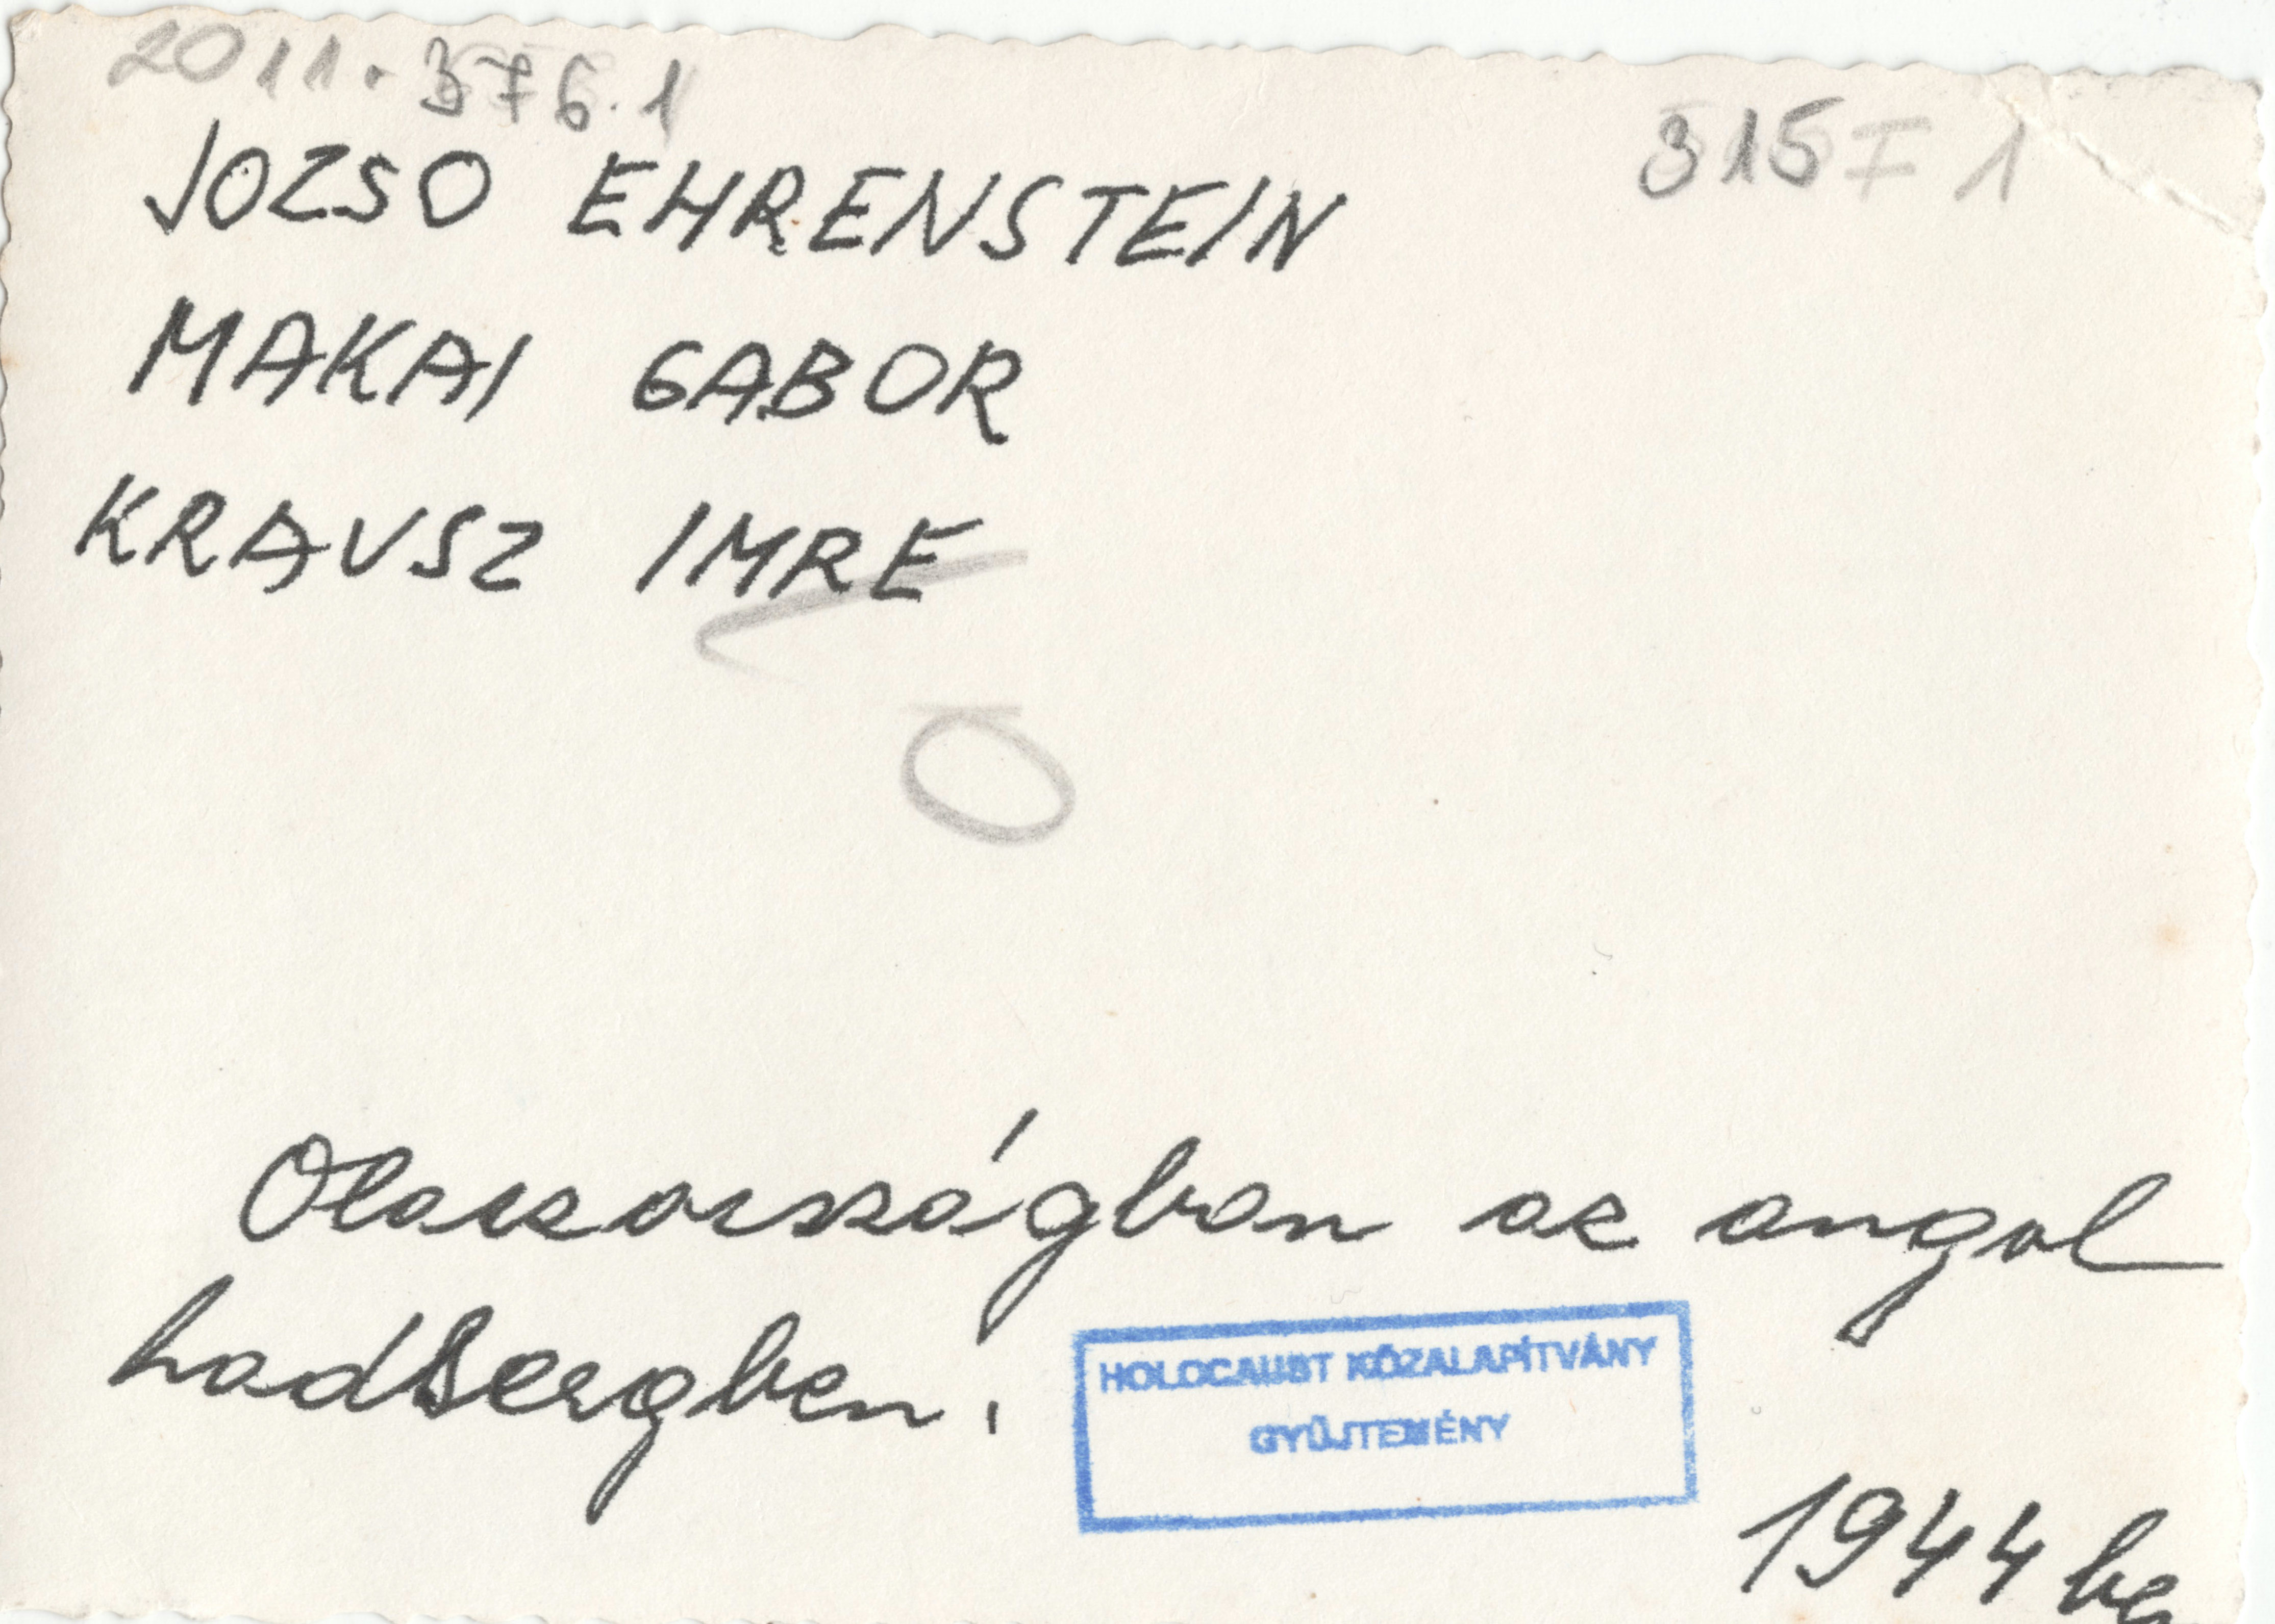 2011.376.1
315 I 1
JOZSO EHRENSTEIN
MAKAI GABOR
KRAUSZ IMRE
Olaszországban az angol
hadseregben.
HOLOCAUST KÖZALAPÍTVÁNY
GYŰJTEMÉNY
1944 be